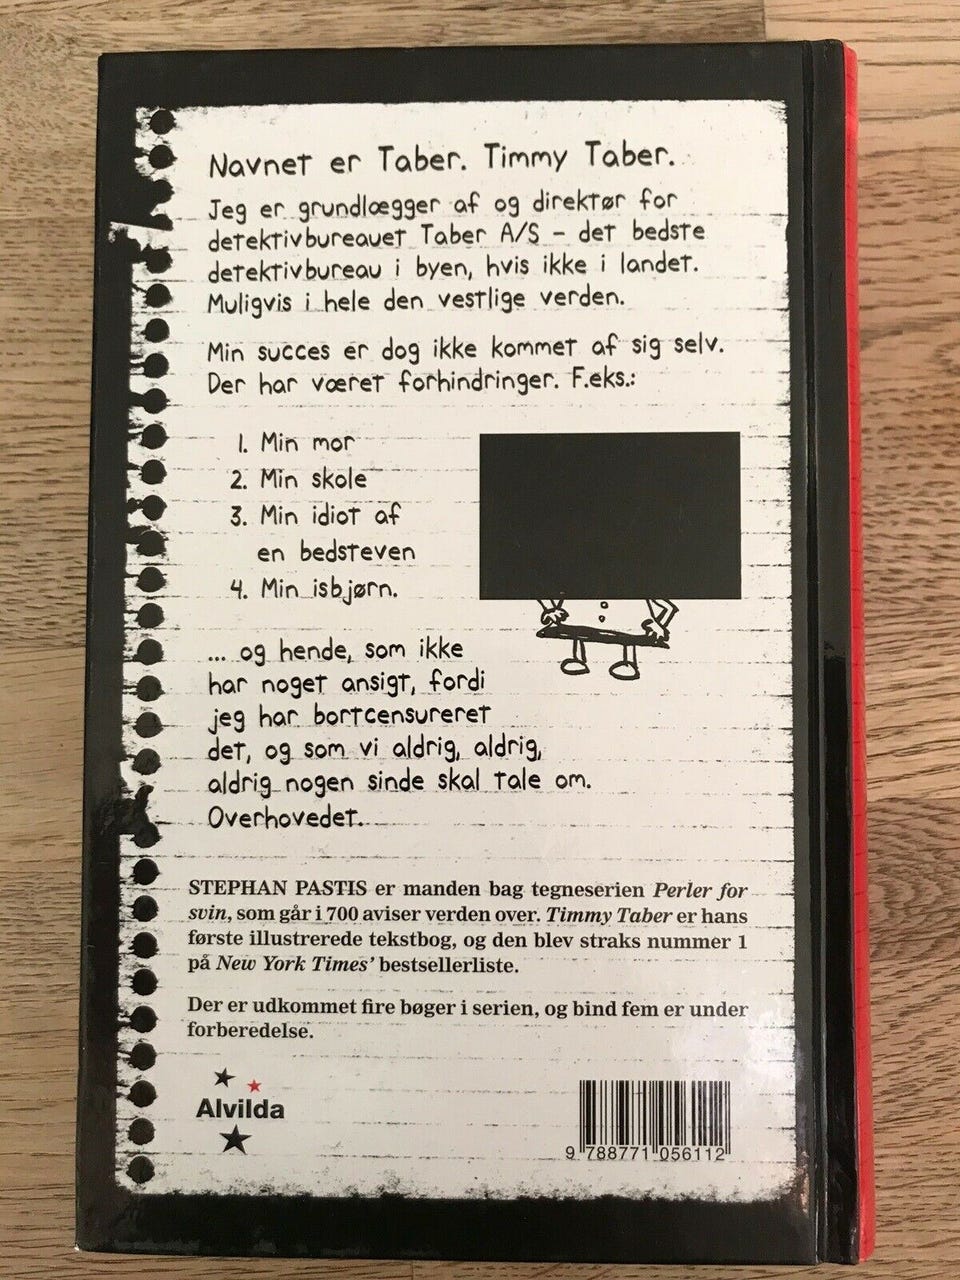 Navnet er Taber. Timmy Taber.
Jeg er grundlægger af og direktør for
detektivbureauet Taber A/S – det bedste
detektivbureau i byen, hvis ikke i landet.
Muligvis i hele den vestlige verden.
Min succes er dog ikke kommet af sig selv.
Der har været forhindringer. F.eks.:
1. Min mor
2. Min skole
3. Min idiot af
en bedsteven
4. Min isbjørn.
... og hende, som ikke
har noget ansigt, fordi
jeg har bortcensureret
det, og som vi aldrig, aldrig,
aldrig nogen sinde skal tale om.
Overhovedet.
STEPHAN PASTIS er manden bag tegneserien Perler for
svin, som går i 700 aviser verden over. Timmy Taber er hans
første illustrerede tekstbog, og den blev straks nummer 1
på New York Times' bestsellerliste.
Der er udkommet fire bøger i serien, og bind fem er under
forberedelse.
Alvilda
9 788771 056112